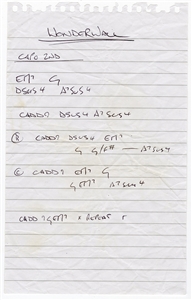 WONDERWALL
CAPO 2ND
EM7 G
DSUS4 A7SUS4
CADD9 DSUS4 A7SUS4
Ⓑ CADD9 DSUS4 EM7
G G/F# — A7SUS4
Ⓒ CADD9 EM7 G
GEM7 A7SUS4
CADD9 GEM7 x REPEAT